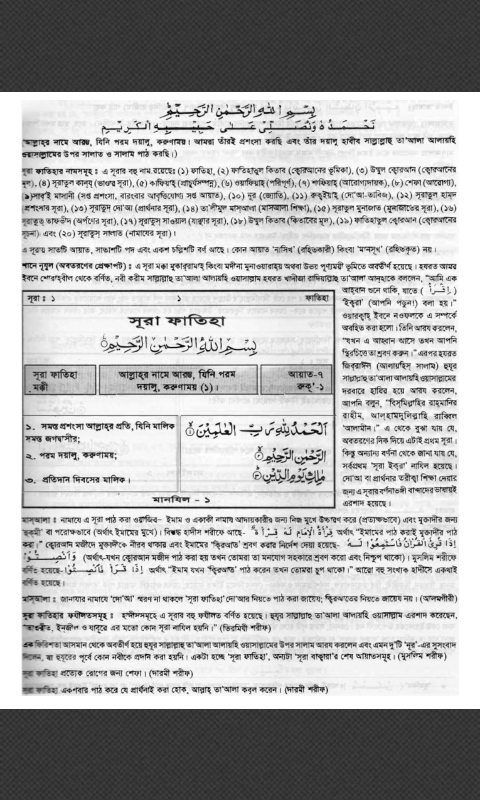 بِسْمِ اللهِ الرَّحْمٰنِ الرَّحِيْمِ
نَحْمَدُهٗ وَنُصَلِّىْ عَلٰى حَبِيْبِهِ الْكَرِيْمِ
আল্লাহর নামে আরম্ভ, যিনি পরম দয়ালু, করুণাময়। আমরা তাঁরই প্রশংসা করছি এবং তাঁর দয়ালু হাবীব সাল্লাল্লাহু তা'আলা আলায়হি
ওয়াসাল্লামের উপর সালাত ও সালাম পাঠ করছি।)
সূরা ফাতিহার নামসমূহ ঃ এ সূরার বহু নাম রয়েছেঃ (১) ফাতিহা, (২) ফাতিহাতুল কিতাব (ক্বোরআনের ভূমিকা), (৩) উম্মুল ক্বোরআন (ক্বোরআনের
মূল), (৪) সূরাতুল কান্‌য (ভাণ্ডার সূরা), (৫) কাফিয়াহ্ (প্রাচুর্যসম্পন্ন), (৬) ওয়াফিয়াহ্ (পরিপূর্ণ), (৭) শাফিয়াহ্ (আরোগ্যদায়ক), (৮) শেফা (আরোগ্য),
(৯)সাব্'ই মাসানী (সপ্ত প্রশংসা, বারংবার আবৃত্তিযোগ্য সপ্ত আয়াত), (১০) নূর (জ্যোতি), (১১) রুক্বইয়াহ্ (দো'আ-তাবিজ), (১২) সূরাতুল হামদ
(প্রশংসার সূরা), (১৩) সূরাতুদ্ দো'আ (প্রার্থনার সূরা), (১৪) তা'লীমুল মাস্আলা (মাসআলা শিক্ষা), (১৫) সূরাতুল মুনাজাত (মুনাজাতের সূরা), (১৬)
সূরাতুত্ তাফভীদ (অর্পণের সূরা), (১৭) সূরাতুস্ সাওয়াল (যাচ্ঞার সূরা), (১৮) উম্মুল কিতাব (কিতাবের মূল), (১৯) ফাতিহাতুল ক্বোরআন (ক্বোরআনের
সূচনা) এবং (২০) সূরাতুস্ সালাত (নামাযের সূরা)।
এ সূরায় সাতটি আয়াত, সাতাশটি পদ এবং একশ চল্লিশটি বর্ণ আছে। কোন আয়াত 'নাসিখ' (রহিতকারী) কিংবা 'মানসূখ' (রহিতকৃত) নয়।
শানে নুযূল (অবতরণের প্রেক্ষাপট) ঃ এ সূরা মক্কা মুকার্‌রামাহ্ কিংবা মদীনা মুনাওয়ারাহ্ অথবা উভয় পূণ্যময়ী ভূমিতে অবতীর্ণ হয়েছে। হযরত আমর
ইবনে শোরাহ্বীল থেকে বর্ণিত, নবী করীম সাল্লাল্লাহু তা'আলা আলায়হি ওয়াসাল্লাম হযরত খাদীজা রাদিয়াল্লাহু তা'আলা আনহাকে বললেন, "আমি এক
আহ্বান শুনে থাকি, যাতে ( اِقْرَأْ )
'ইক্বরা' (আপনি পড়ুন!) বলা হয়।"
ওয়ারক্বাহ্ ইবনে নওফলকে এ সম্পর্কে
অবহিত করা হলো। তিনি আরয করলেন,
"যখন এ আহ্বান আসে তখন আপনি
স্থিরচিত্তে তা শ্রবণ করুন।" এরপর হযরত
জিব্রাঈল (আলায়হিস্ সালাম) হুযূর
সাল্লাল্লাহু তা'আলা আলায়হি ওয়াসাল্লামের
দরবারে হাযির হয়ে আরয করলেন,
আপনি বলুন, "বিস্মিল্লাহির রাহ্মানির
রাহীম, আলহামদুলিল্লাহি রাব্বিল
'আলামীন।" এ থেকে বুঝা যায় যে,
অবতরণের দিক দিয়ে এটাই প্রথম সূরা।
কিন্তু অন্যান্য বর্ণনা থেকে জানা যায় যে,
সর্বপ্রথম 'সূরা ইক্বরা' নাযিল হয়েছে।
দো'আ বা প্রার্থনার তরীক্বা শিক্ষা দেয়ার
জন্য এ সূরার বর্ণনাভঙ্গী বান্দাদের ভাষায়ই
এরশাদ হয়েছে।
সূরা ঃ ১ ১ ফাতিহা
সূরা ফাতিহা
بِسْمِ اللهِ الرَّحْمٰنِ الرَّحِيْمِ
সূরা ফাতিহা মক্কী
আল্লাহর নামে আরম্ভ, যিনি পরম দয়ালু, করুণাময় (১)।
আয়াত-৭ রুকূ'-১
১. সমস্ত প্রশংসা আল্লাহর প্রতি, যিনি মালিক
সমস্ত জগদ্বাসীর;
২. পরম দয়ালু, করুণাময়;
৩. প্রতিদান দিবসের মালিক।
اَلْحَمْدُ لِلّٰهِ رَبِّ الْعٰلَمِيْنَ ۝
الرَّحْمٰنِ الرَّحِيْمِ ۝
مٰلِكِ يَوْمِ الدِّيْنِ ۝
মানযিল - ১
মাসআলাঃ নামাযে এ সূরা পাঠ করা ওয়াজিব- ইমাম ও একাকী নামায আদায়কারীর জন্য নিজ মুখে উচ্চারণ করে (প্রত্যক্ষভাবে) এবং মুক্তাদীর জন্য
'হুকমী' বা পরোক্ষভাবে (অর্থাৎ ইমামের মুখে)। বিশুদ্ধ হাদীস শরীফে আছে- قِرَاءَةُ الْاِمَامِ لَهٗ قِرَاءَةٌ অর্থাৎ "ইমামের পাঠ করাই মুক্তাদীর পাঠ
করা।" ক্বোরআন মজীদে মুক্তাদীকে নীরব থাকার এবং ইমামের 'ক্বিরআত' শ্রবণ করার নির্দেশ দেয়া হয়েছে- اِذَا قُرِئَ الْقُرْاٰنُ فَاسْتَمِعُوْا لَهٗ
وَاَنْصِتُوْا (অর্থাৎ-যখন ক্বোরআন মজীদ পাঠ করা হয় তখন তোমরা তা মনযোগ সহকারে শ্রবণ করো এবং নিশ্চুপ থাকো)। মুসলিম শরীফে
বর্ণিত হয়েছে- اِذَا قَرَأَ فَاَنْصِتُوْا অর্থাৎ "ইমাম যখন 'ক্বিরআত' পাঠ করেন তখন তোমরা চুপ থাকো।" আরো বহু সংখ্যক হাদীসে একথাই
বর্ণিত হয়েছে।
মাসআলাঃ জানাযার নামাযে 'দো'আ' স্মরণ না থাকলে 'সূরা ফাতিহা' দো'আর নিয়তে পাঠ করা জায়েয; ক্বিরআতের নিয়তে জায়েয নয়। (আলমগীরী)
সূরা ফাতিহার ফযীলতসমূহ ঃ হাদীসসমূহে এ সূরার বহু ফযীলত বর্ণিত হয়েছে। হুযূর সাল্লাল্লাহু তা'আলা আলায়হি ওয়াসাল্লাম এরশাদ করেছেন,
"তাওরীত, ইনজীল ও যাবূরে এর মতো কোন সূরা নাযিল হয়নি।" (তিরমিযী শরীফ)
এক ফিরিশতা আসমান থেকে অবতীর্ণ হয়ে হুযূর সাল্লাল্লাহু তা'আলা আলায়হি ওয়াসাল্লামের উপর সালাম আরয করলেন এবং এমন দু'টি 'নূর'-এর সুসংবাদ
দিলেন, যা হুযূরের পূর্বে কোন নবীকে প্রদান করা হয়নি। একটা হচ্ছে 'সূরা ফাতিহা', অন্যটা 'সূরা বাক্বারা'র শেষ আয়াতসমূহ। (মুসলিম শরীফ)
সূরা ফাতিহা প্রত্যেক রোগের জন্য শেফা। (দারমী শরীফ)
সূরা ফাতিহা একশবার পাঠ করে যে প্রার্থনাই করা হোক, আল্লাহ্ তা'আলা কবূল করেন। (দারমী শরীফ)